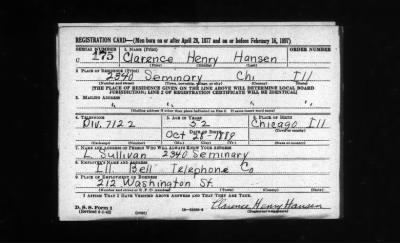 REGISTRATION CARD—(Men born on or after April 28, 1877 and on or before February 16, 1897)
SERIAL NUMBER 1. NAME (Print) ORDER NUMBER
175 Clarence Henry Hansen
2. PLACE OF RESIDENCE (Print)
2340 Seminary Chi Ill
[THE PLACE OF RESIDENCE GIVEN ON THE LINE ABOVE WILL DETERMINE LOCAL BOARD
JURISDICTION; LINE 2 OF REGISTRATION CERTIFICATE WILL BE IDENTICAL]
3. MAILING ADDRESS
4. TELEPHONE 5. AGE IN YEARS 6. PLACE OF BIRTH
Div. 7122 52 Chicago Ill
DATE OF BIRTH
Oct 28-1889
7. NAME AND ADDRESS OF PERSON WHO WILL ALWAYS KNOW YOUR ADDRESS
L. Sullivan 2340 Seminary
8. EMPLOYER'S NAME AND ADDRESS
Ill Bell Telephone Co
9. PLACE OF EMPLOYMENT OR BUSINESS
212 Washington St.
I AFFIRM THAT I HAVE VERIFIED ABOVE ANSWERS AND THAT THEY ARE TRUE.
D. S. S. Form 1
Clarence Henry Hansen